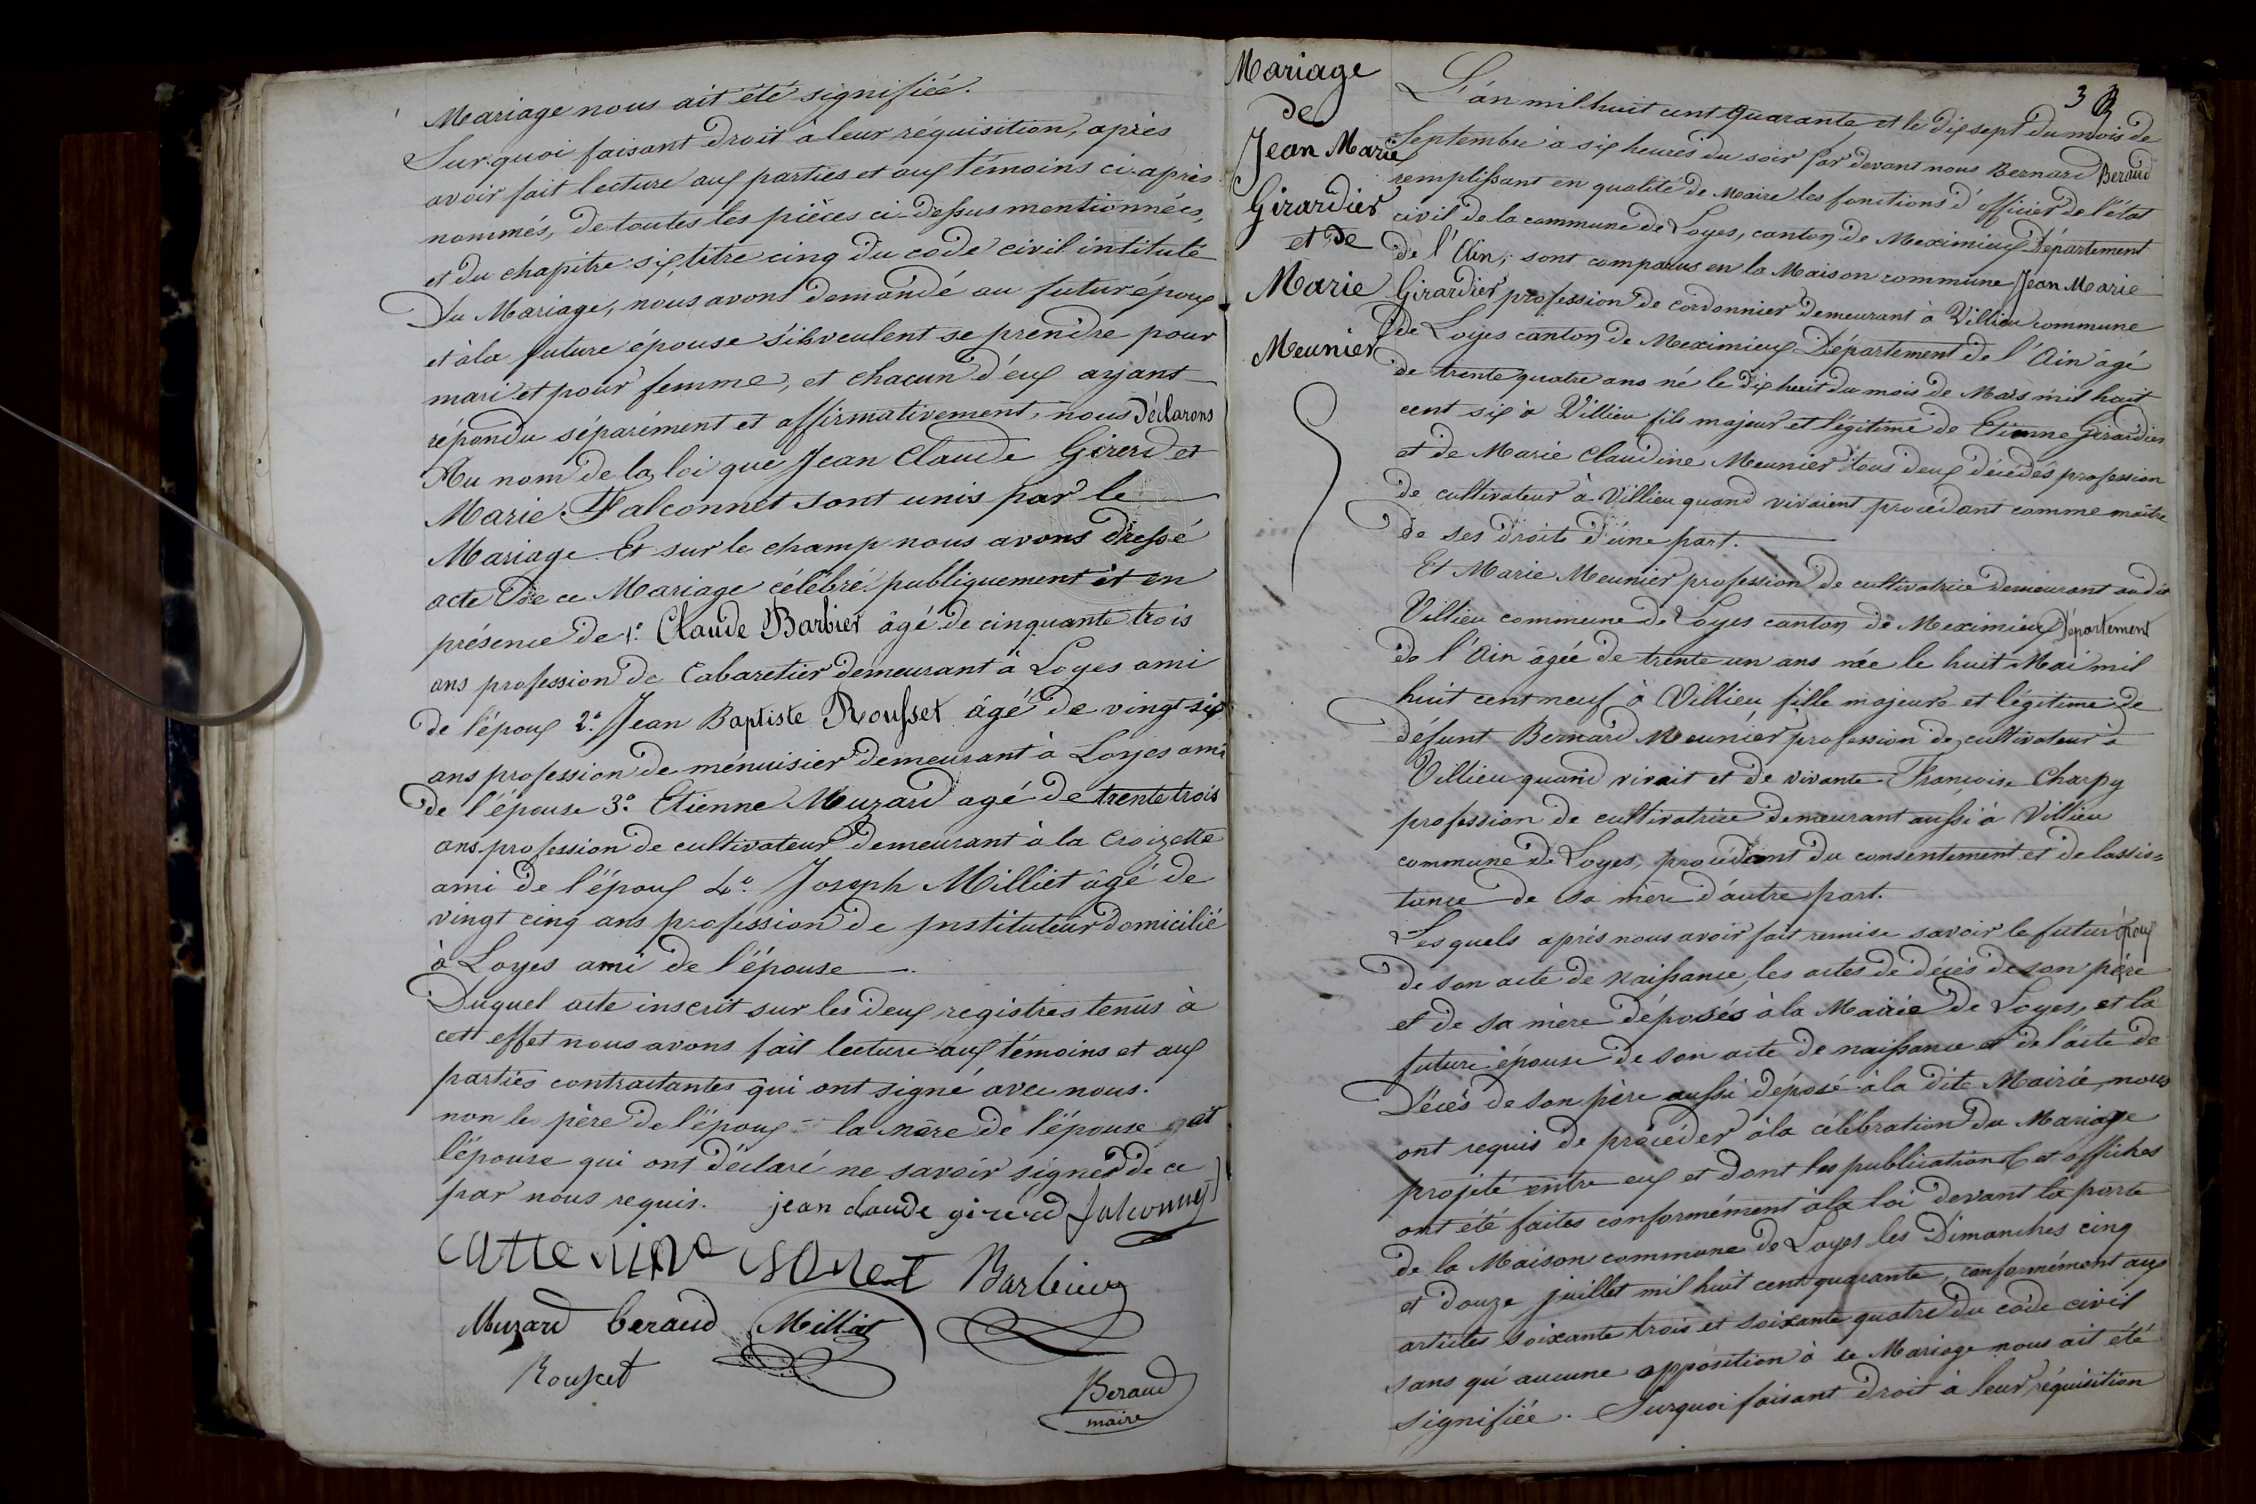 Mariage nous ait été signifiée.
Sur quoi faisant droit à leur réquisition, après
avoir fait lecture aux parties et aux témoins ci-après
nommés, de toutes les pièces ci-dessus mentionnées,
et du chapitre six, titre cinq du code civil intitulé
Du Mariage, nous avons demandé au futur époux
et à la future épouse s'ils veulent se prendre pour
mari et pour femme, et chacun d'eux ayant
répondu séparément et affirmativement, nous Déclarons
Au nom de la loi que Jean Claude Girerd et
Marie Falconnet sont unis par le
Mariage Et sur le champ nous avons dressé
acte de ce Mariage célébré publiquement et en
présence de 1.° Claude Barbier âgé de cinquante trois
ans profession de Cabaretier demeurant à Loyes ami
de l'époux 2.° Jean Baptiste Rousset âgé de vingt six
ans profession de ménuisier demeurant à Loyes ami
de l'épouse 3.° Etienne Muzard agé de trente trois
ans profession de cultivateur demeurant à la Croizette
ami de l'époux 4.° Joseph Milliet âgé de
vingt cinq ans profession de Instituteur domicilié
à Loyes ami de l'épouse
Duquel acte inscrit sur les deux registres tenus à
cett effet nous avons fait lecture aux témoins et aux
parties contractantes qui ont signé avec nous.
non le père de l'époux - la mère de l'épouse et
l'épouse qui ont déclaré ne savoir signer de ce
par nous requis. jean claude girerd falconnet
Barbier
Muzard beraud Milliet
Rousset
Beraud
maire
Mariage
de
Jean Marie
Girardier
et de
Marie
Meunier
3
L'an mil huit cent quarante et le dix sept du mois de
Septembre à six heures du soir par devant nous Bernard Beraud
remplissant en qualité de Maire les fonctions d'officier de l'état
civil de la commune de Loyes, canton de Meximieux Département
de l'Ain, sont comparus en la Maison commune Jean Marie
Girardier profession de cordonnier demeurant à Villieu commune
de Loyes canton de Meximieux Département de l'Ain âgé
de trente quatre ans né le dix huit du mois de Mars mil huit
cent six à Villieu fils majeur et légitime de Etienne Girardier
et de Marie Claudine Meunier tous deux décedés profession
de cultivateur à Villieu quand vivaient procédant comme maître
de ses droits d'une part.
Et Marie Meunier profession de cultivatrice demeurant audit
Villieu commune de Loyes canton de Meximieux Département
de l'Ain âgée de trente un ans née le huit Mai mil
huit cent neuf à Villieu fille majeure et légitime de
défunt Bernard Meunier profession de cultivateur à
Villieu quand vivait et de vivante Françoise Charpy
profession de cultivatrice demeurant aussi à Villieu
commune de Loyes, procédant du consentement et de lassis=
tance de sa mère d'autre part.
Les quels après nous avoir fait remise savoir le futur époux
de son acte de naissance, les actes de décès de son père
et de sa mère déposés à la Mairie de Loyes, et la
future épouse de son acte de naissance et de l'acte de
Décès de son père aussi déposé à la dite Mairie, nous
ont requis de procéder à la célébration du Mariage
projeté entre eux et dont les publications et affiches
ont été faites conformément à la loi devant la porte
de la Maison commune de Loyes les Dimanches cinq
et douze juillet mil huit cent quarante, conformément aux
articles soixante trois et soixante quatre du code civil
sans qu'aucune opposition à ce Mariage nous ait été
signifiée. Surquoi faisant droit à leur réquisition